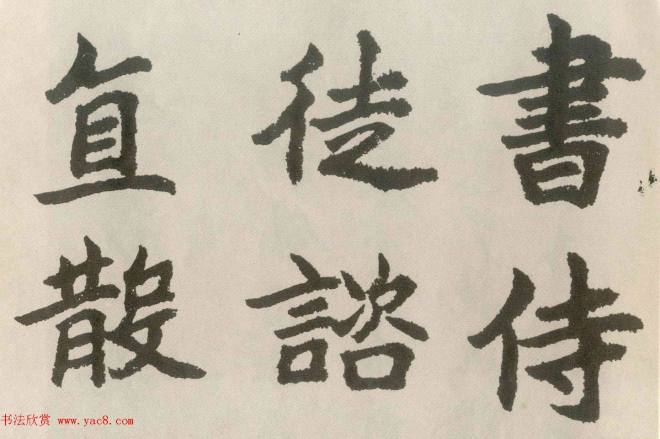 書侍
徒諮
直散
书法欣赏 www.yac8.com